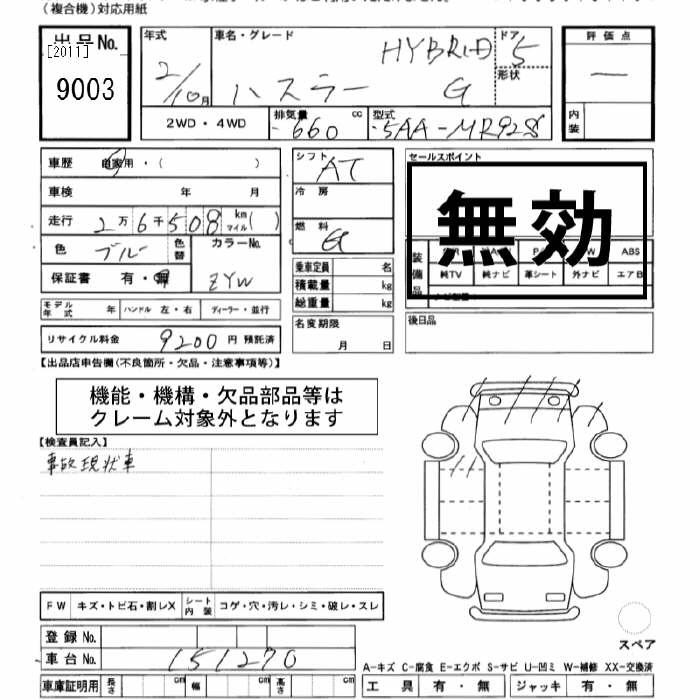 (複合機)対応用紙
出品No.
[2011]
9003
年式
2/10月
車名・グレード
HYBRID
ハスラー G
ドア
5
形状
評価点
—
内装
2WD・4WD
排気量 cc
660
型式
5AA-MR92S
車歴 自家用・( )
車検 年 月
走行 2万6千508 km マイル( )
色 ブルー 色替
カラーNo.
ZYW
保証書 有・無
モデル年式 年 ハンドル 左・右 ディーラー・並行
リサイクル料金 9200 円 預託済
シフト
AT
冷房
燃料
G
乗車定員 名
積載量 kg
総重量 kg
名変期限
月 日
セールスポイント
無効
装備品
ABS
純TV 純ナビ 革シート 外ナビ エアB
後日品
【出品店申告欄(不良箇所・欠品・注意事項等)】
機能・機構・欠品部品等は
クレーム対象外となります
【検査員記入】
事故現状車
FW キズ・トビ石・割レX シート内装 コゲ・穴・汚レ・シミ・破レ・スレ
登録No.
車台No. 151270
車庫証明用 長さ cm 幅 cm 高さ cm
スペア
A-キズ C-腐食 E-エクボ S-サビ U-凹ミ W-補修 XX-交換済
工具 有・無 ジャッキ 有・無